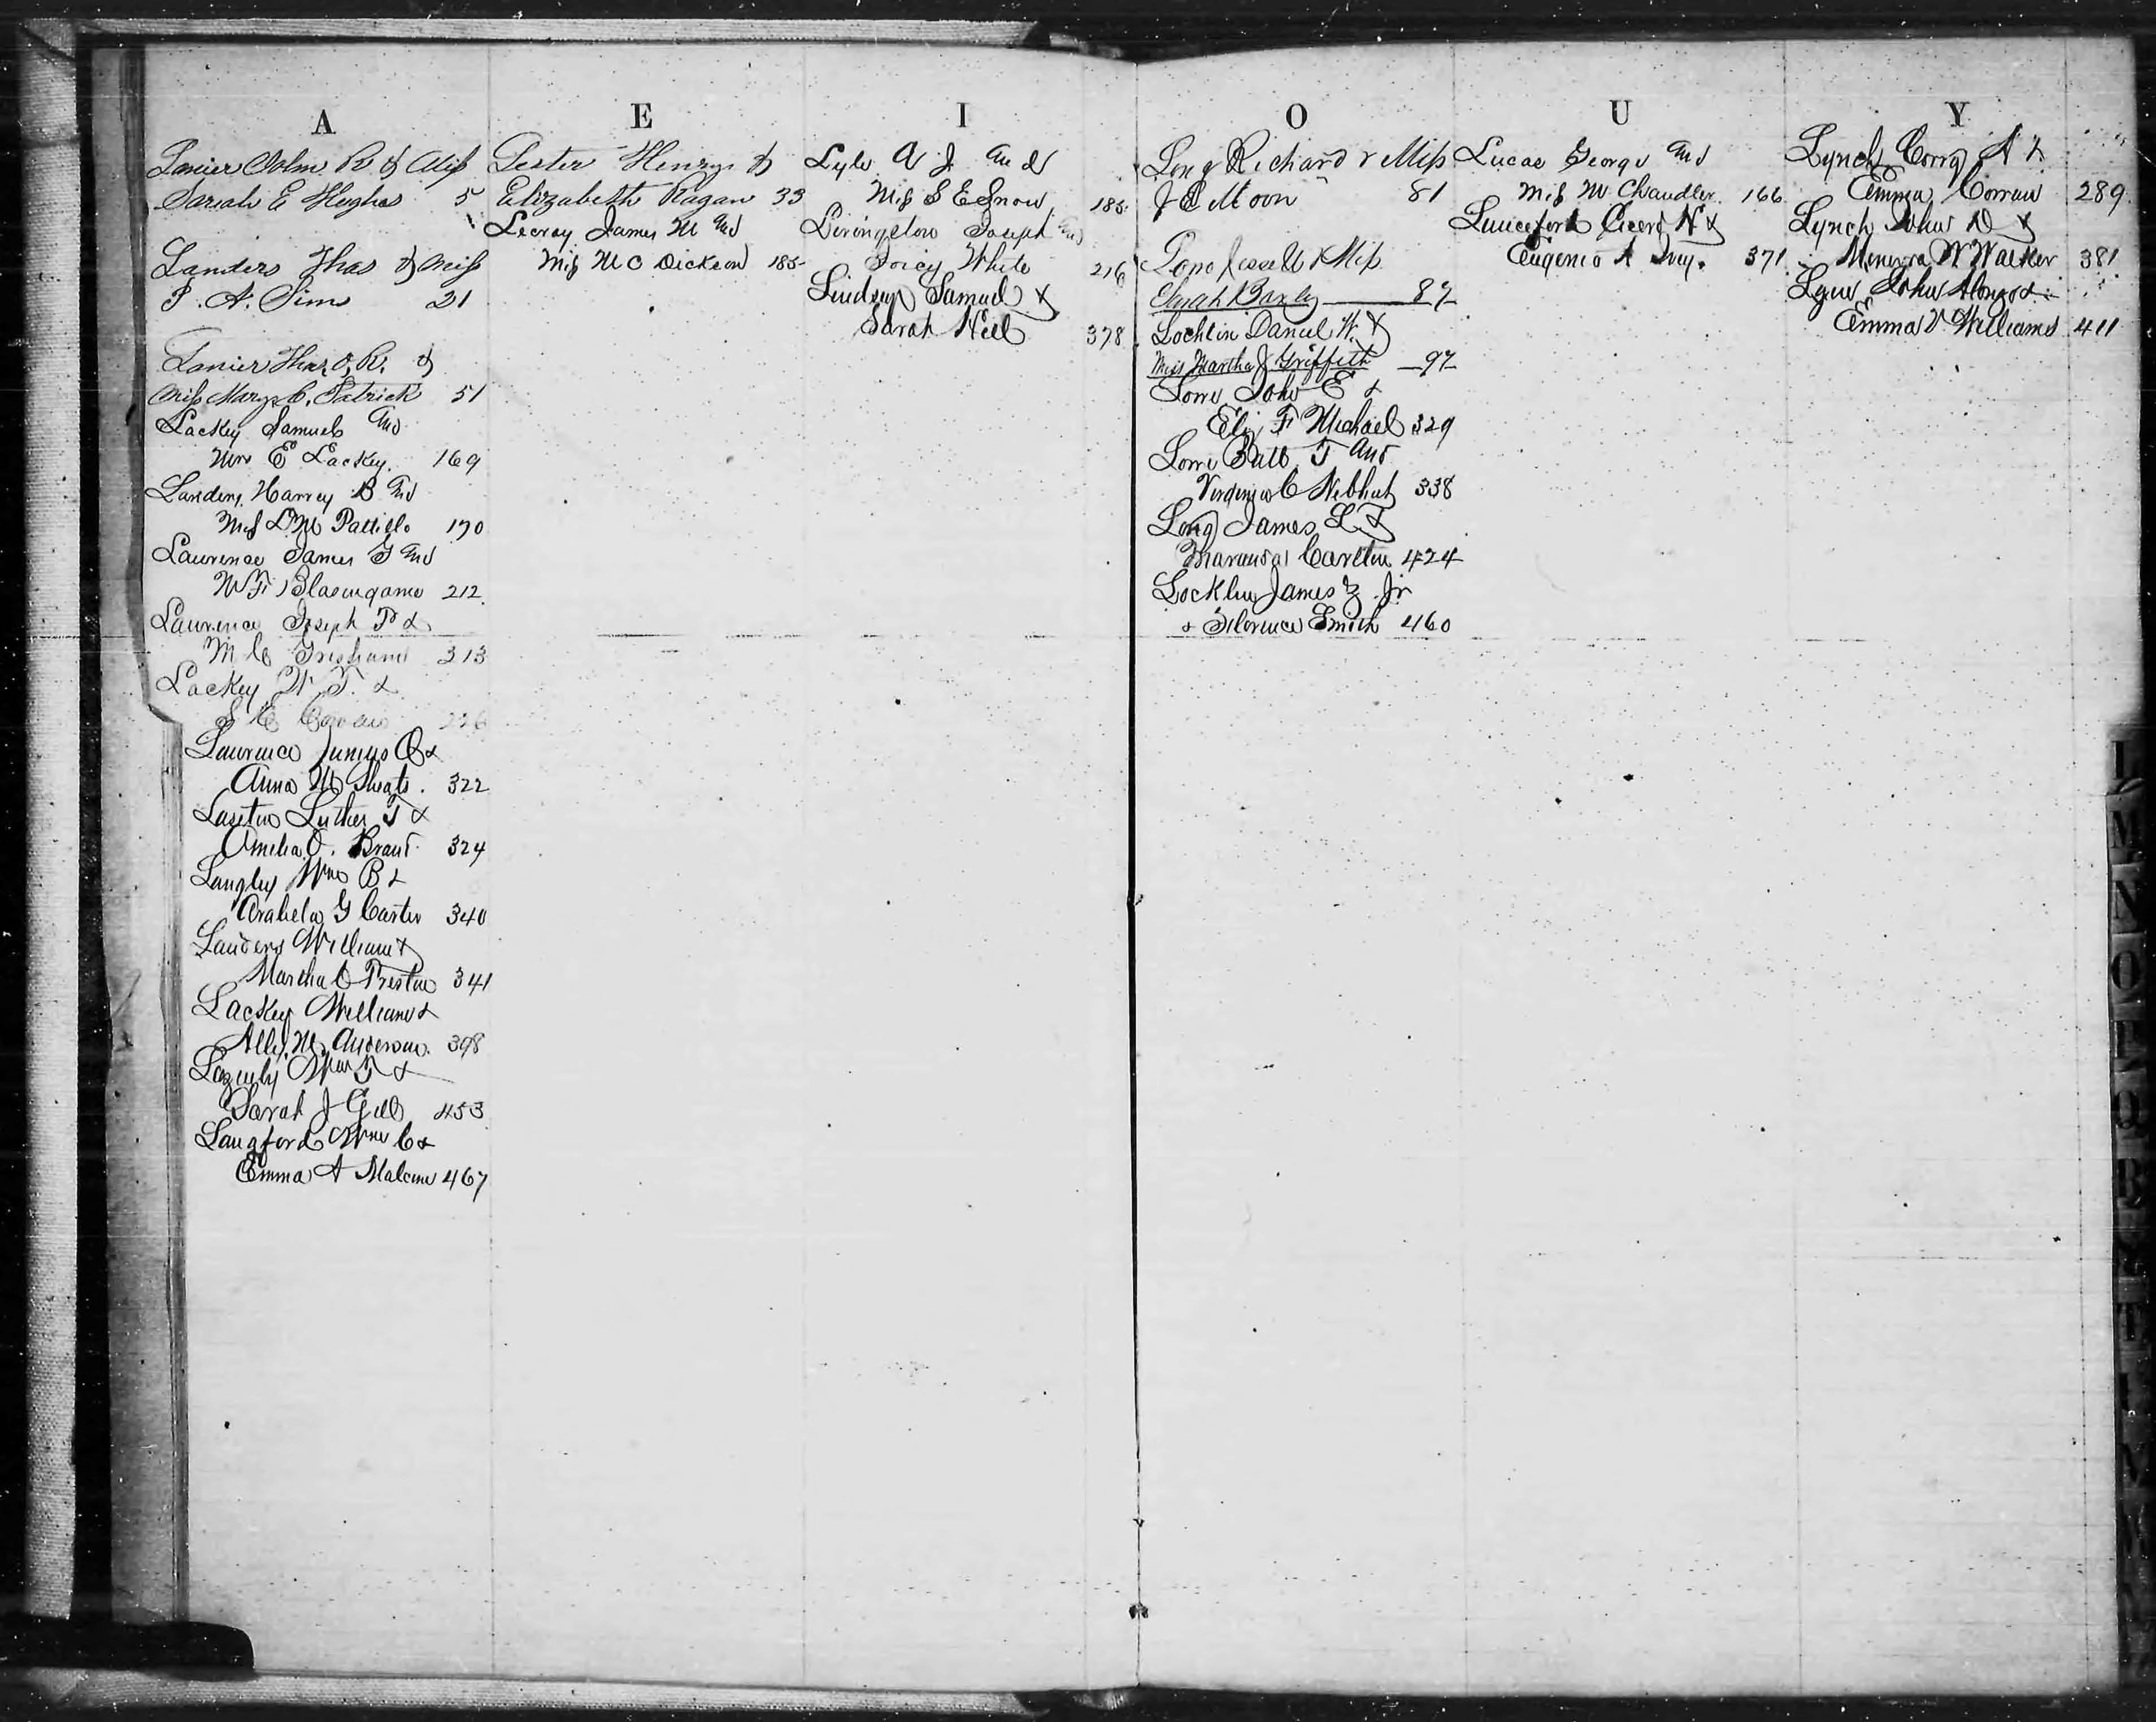 A
Lanier Colm. R. & Miss
Sariah E Hughes 5
Landers Thas & Miss
P. A. Sims 21
Lanier Thas, O, R. &
Miss Mary C. Patrick 51
Lackey Samuel And
Mrs E Lackey. 169
Landers Harvey B And
Miss L M Pattillo 170
Lawrence James G And
W F Blasingame 212
Lawrence Joseph P &
M C Gresham 313
Lackey W. T. &
S E
Lawrence Junius Q &
Anna M Sheats. 322
Lasetter Luther T &
Amelia O. Brant 324
Langley Wm B &
Arabela G Carter 340
Landers William &
Martha C Preston 341
Lackey William &
Ally. M. Anderson. 398
Lazenby Wm T &
Sarah J Gill 453
Langford Wm C &
Emma A Malcom 467
E
Lester Henry &
Elizabeth Ragan 33
Leeroy James M And
Miss M C Dickson 185
I
Lyle A J And
Miss S E Snow 185
Livingston Joseph And
Joicy White 216
Lindsey Samuel &
Sarah Nell 378
O
Long Richard & Miss
J E Moon 81
Long Jesse W & Miss
87
Lochlin Daniel W. &
Miss Martha J Griffeth 97
Lowe John E &
Eliz F Michael 329
Lowe Batt. T And
Virginia C Nebhut 338
Long James L. &
Maranda Carlton 424
Locklin James Z Jr
& Florence Smith 460
U
Lucas George And
Miss M Chandler. 166
Lunceford Cicero N &
Eugenio A Ivy. 371
Y
Lynch Corry A &
Emma Conaw 289
Lynch John D &
Minerva W Walker 381
Lynn John Alonzo &
Emma V Williams 411
L
M
N
O
P
Q
R
S
T